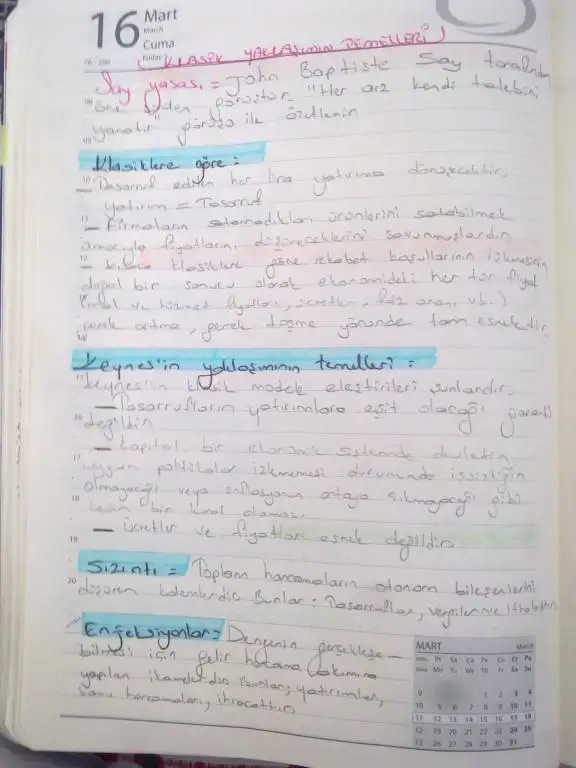 16 Mart
March
Cuma
Friday
( KLASİK YAKLAŞIMIN TEMELLERİ )
Say yasası = John Baptiste Say tarafından
öne süren görüştür. "Her arz kendi talebini
yaratır" görüşü ile özetlenir
Klasiklere göre :
— Tasarruf edilen her lira yatırıma dönüşecektir,
yatırım = Tasarruf
— Firmaların satamadıkları ürünlerini satabilmek
amacıyla fiyatlarını düşüreceklerini savunmuşlardır
— kısaca klasiklere göre rekabet koşullarının izlemesinin
doğal bir sonucu olarak ekonomideki her tür fiyat
(mal ve hizmet fiyatları, ücretler, faiz oranı vb.)
gerek artma, gerek düşme yönünde tam esnektir.
Keynes'in yaklaşımının temelleri :
Keynes'in klasik modele eleştirileri şunlardır,
— Tasarrufların yatırımlara eşit olacağı garanti
değildir
— Kapitalist bir ekonomik sistemde devletin
uygun politikalar izlememesi durumunda işsizliğin
olmayacağı veya enflasyonun ortaya çıkmayacağı gibi
kesin bir kural olamaz.
— ücretler ve fiyatlar esnek değildir
Sızıntı = Toplam harcamaların otonom bileşenlerini
düşüren kalemlerdir Bunlar : Tasarruflar, vergiler ve ithalattır
Enjeksiyonlar = Dengenin gerçekleşe-
bilmesi için gelir harcama akımına
yapılan ilavelerdir Bunlar; yatırımlar,
kamu harcamaları, ihracattır
MART March
Pt Sa Ça Pe Cu Ct Pa
9 1 2 3 4
10 5 6 7 8 9 10 11
11 12 13 14 15 16 17 18
12 19 20 21 22 23 24 25
13 26 27 28 29 30 31